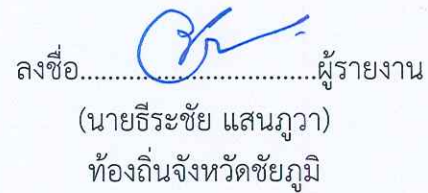 ลงชื่อ....................................ผู้รายงาน
(นายธีระชัย แสนภูวา)
ท้องถิ่นจังหวัดชัยภูมิ